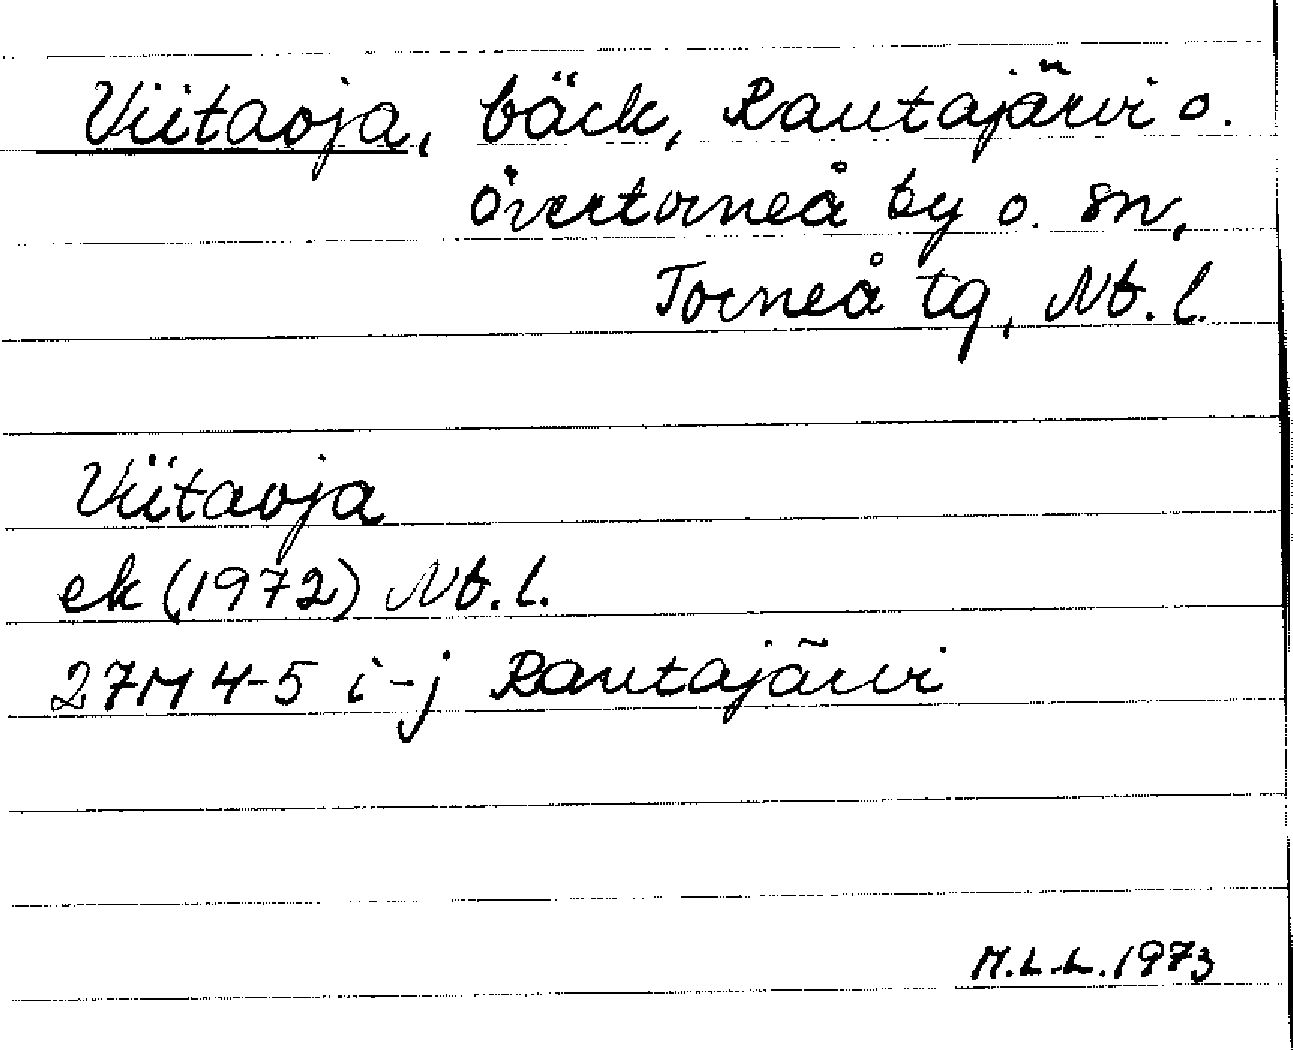 Viitaoja, bäck, Rautajärvi o.
Övertorneå by o. sn,
Torneå tg, Nb. l.
Viitaoja
ek (1972) Nb. l.
27M 4-5 i-j Rautajärvi
M.L.L. 1973